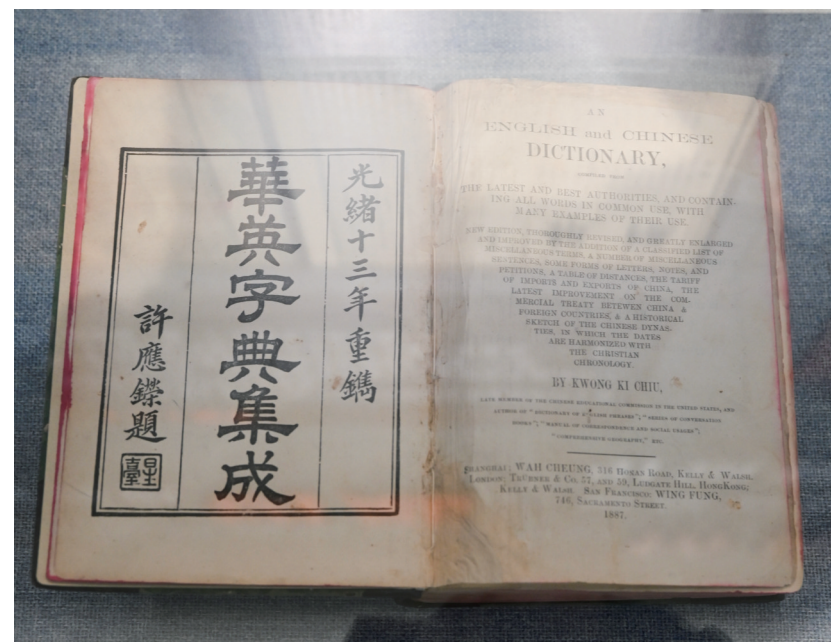 光緒十三年重鐫
華英字典集成
許應鑅題
AN
ENGLISH and CHINESE
DICTIONARY,
COMPILED FROM
THE LATEST AND BEST AUTHORITIES, AND CONTAIN-
ING ALL WORDS IN COMMON USE, WITH
MANY EXAMPLES OF THEIR USE.
NEW EDITION, THOROUGHLY REVISED, AND GREATLY ENLARGED
AND IMPROVED BY THE ADDITION OF A CLASSIFIED LIST OF
MISCELLANEOUS TERMS, A NUMBER OF MISCELLANEOUS
SENTENCES, SOME FORMS OF LETTERS, NOTES, AND
PETITIONS, A TABLE OF DISTANCES, THE TARIFF
OF IMPORTS AND EXPORTS OF CHINA, THE
LATEST IMPROVEMENT ON THE COM-
MERCIAL TREATY BETEWEN CHINA &
FOREIGN COUNTRIES, & A HISTORICAL
SKETCH OF THE CHINESE DYNAS-
TIES, IN WHICH THE DATES
ARE HARMONIZED WITH
THE CHRISTIAN
CHRONOLOGY.
BY KWONG KI CHIU,
LATE MEMBER OF THE CHINESE EDUCATIONAL COMMISSION IN THE UNITED STATES, AND
AUTHOR OF "DICTIONARY OF ENGLISH PHRASES"; "SERIES OF CONVERSATION
BOOKS"; "MANUAL OF CORRESPONDENCE AND SOCIAL USAGES";
"COMPREHENSIVE GEOGRAPHY," ETC.
SHANGHAI: WAH CHEUNG, 316 HONAN ROAD, KELLY & WALSH.
LONDON: TRUBNER & CO. 57, AND 59, LUDGATE HILL. HONGKONG:
KELLY & WALSH. SAN FRANCISCO: WING FUNG,
746, SACRAMENTO STREET.
1887.